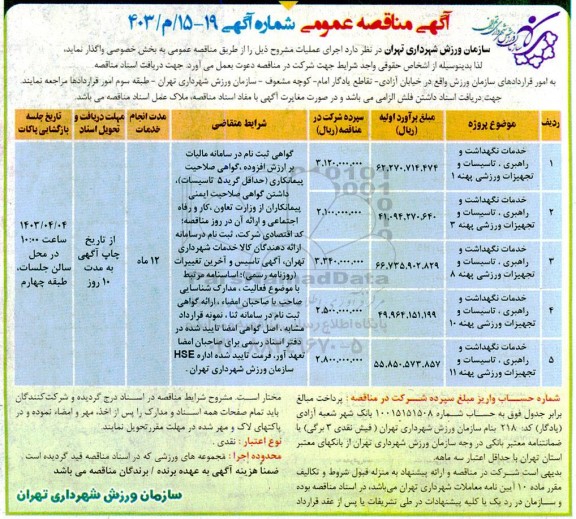 آگهی مناقصه عمومی شماره آگهی ۱۹-۱۵/م/۴۰۳
سازمان ورزش شهرداری تهران در نظر دارد اجرای عملیات مشروح ذیل را از طریق مناقصه عمومی به بخش خصوصی واگذار نماید،
لذا بدینوسیله از اشخاص حقوقی واجد شرایط جهت شرکت در مناقصه دعوت بعمل می آورد. جهت دریافت اسناد مناقصه
به امور قراردادهای سازمان ورزش واقع در خیابان آزادی- تقاطع یادگار امام- کوچه مشعوف - سازمان ورزش شهرداری تهران - طبقه سوم امور قراردادها مراجعه نمایند.
جهت دریافت اسناد داشتن فلش الزامی می باشد و در صورت مغایرت آگهی با مفاد اسناد مناقصه، ملاک عمل اسناد مناقصه می باشد.
ردیف
موضوع پروژه
مبلغ برآورد اولیه (ریال)
سپرده شرکت در مناقصه (ریال)
شرایط متقاضی
مدت انجام خدمات
مهلت دریافت و تحویل اسناد
تاریخ جلسه بازگشایی پاکات
۱
خدمات نگهداشت و
راهبری ، تاسیسات و
تجهیزات ورزشی پهنه ۱
۶۲,۲۷۰,۷۱۴,۴۷۴
۳,۱۲۰,۰۰۰,۰۰۰
۲
خدمات نگهداشت و
راهبری ، تاسیسات و
تجهیزات ورزشی پهنه ۳
۴۱,۰۹۴,۲۷۰,۶۴۰
۲,۱۰۰,۰۰۰,۰۰۰
۳
خدمات نگهداشت و
راهبری ، تاسیسات و
تجهیزات ورزشی پهنه ۸
۶۶,۷۳۵,۹۰۲,۸۲۹
۳,۳۴۰,۰۰۰,۰۰۰
۴
خدمات نگهداشت و
راهبری ، تاسیسات و
تجهیزات ورزشی پهنه ۱۰
۴۹,۹۶۴,۱۵۱,۱۹۹
۲,۵۰۰,۰۰۰,۰۰۰
۵
خدمات نگهداشت و
راهبری ، تاسیسات و
تجهیزات ورزشی پهنه ۱۱
۵۵,۸۵۰,۵۷۳,۸۵۷
۲,۸۰۰,۰۰۰,۰۰۰
گواهی ثبت نام در سامانه مالیات
بر ارزش افزوده ،گواهی صلاحیت
پیمانکاری (حداقل گرید۵ تاسیسات)،
داشتن گواهی صلاحیت ایمنی
پیمانکاران از وزارت تعاون ،کار و رفاه
اجتماعی و ارائه آن در روز مناقصه؛
کد اقتصادی شرکت، ثبت نام درسامانه
ارائه دهندگان کالا خدمات شهرداری
تهران، آگهی تاسیس و آخرین تغییرات
(روزنامه رسمی)؛ اساسنامه مرتبط
با موضوع فعالیت ، مدارک شناسایی
صاحب یا صاحبان امضاء ، ارائه گواهی
ثبت نام در سامانه ثنا ، نمونه قرارداد
مشابه ، اصل گواهی امضا تایید شده در
دفتر اسناد رسمی برای صاحبان امضا
تعهد آور، فرمت تایید شده اداره HSE
سازمان ورزش شهرداری تهران .
۱۲ ماه
از تاریخ
چاپ آگهی
به مدت
۱۰ روز
۱۴۰۳/۰۴/۰۴
ساعت ۱۰:۰۰
در محل
سالن جلسات،
طبقه چهارم
شماره حساب واریز مبلغ سپرده شرکت در مناقصه : پرداخت مبالغ
برابر جدول فوق به حساب شماره ۱۰۰۱۵۱۵۱۵۰۸ بانک شهر شعبه آزادی
(یادگار) کد: ۲۱۸ بنام سازمان ورزش شهرداری تهران ( فیش نقدی ۳ برگی) یا
ضمانتنامه معتبر بانکی در وجه سازمان ورزش شهرداری تهران از بانکهای معتبر
استان تهران با حداقل اعتبار سه ماهه.
بدیهی است شرکت در مناقصه و ارائه پیشنهاد به منزله قبول شروط و تکالیف
مقرر ماده ۱۰ آیین نامه معاملات شهرداری تهران می‌باشد، در اسناد مناقصه بوده
و سازمان در رد یک یا کلیه پیشنهادات در طی تشریفات یا پس از عقد قرارداد
مختار است. مشروح شرایط مناقصه در اسناد درج گردیده و شرکت‌کنندگان
باید تمام صفحات همه اسناد و مدارک را پس از اخذ، مهر و امضاء نموده و در
پاکتهای لاک و مهر شده در مهلت مقررتحویل نمایند.
نوع اعتبار : نقدی .
محدوده اجرا : مجموعه های ورزشی که در اسناد مناقصه قید گردیده است .
ضمنا هزینه آگهی به عهده برنده / برندگان مناقصه می باشد
سازمان ورزش شهرداری تهران